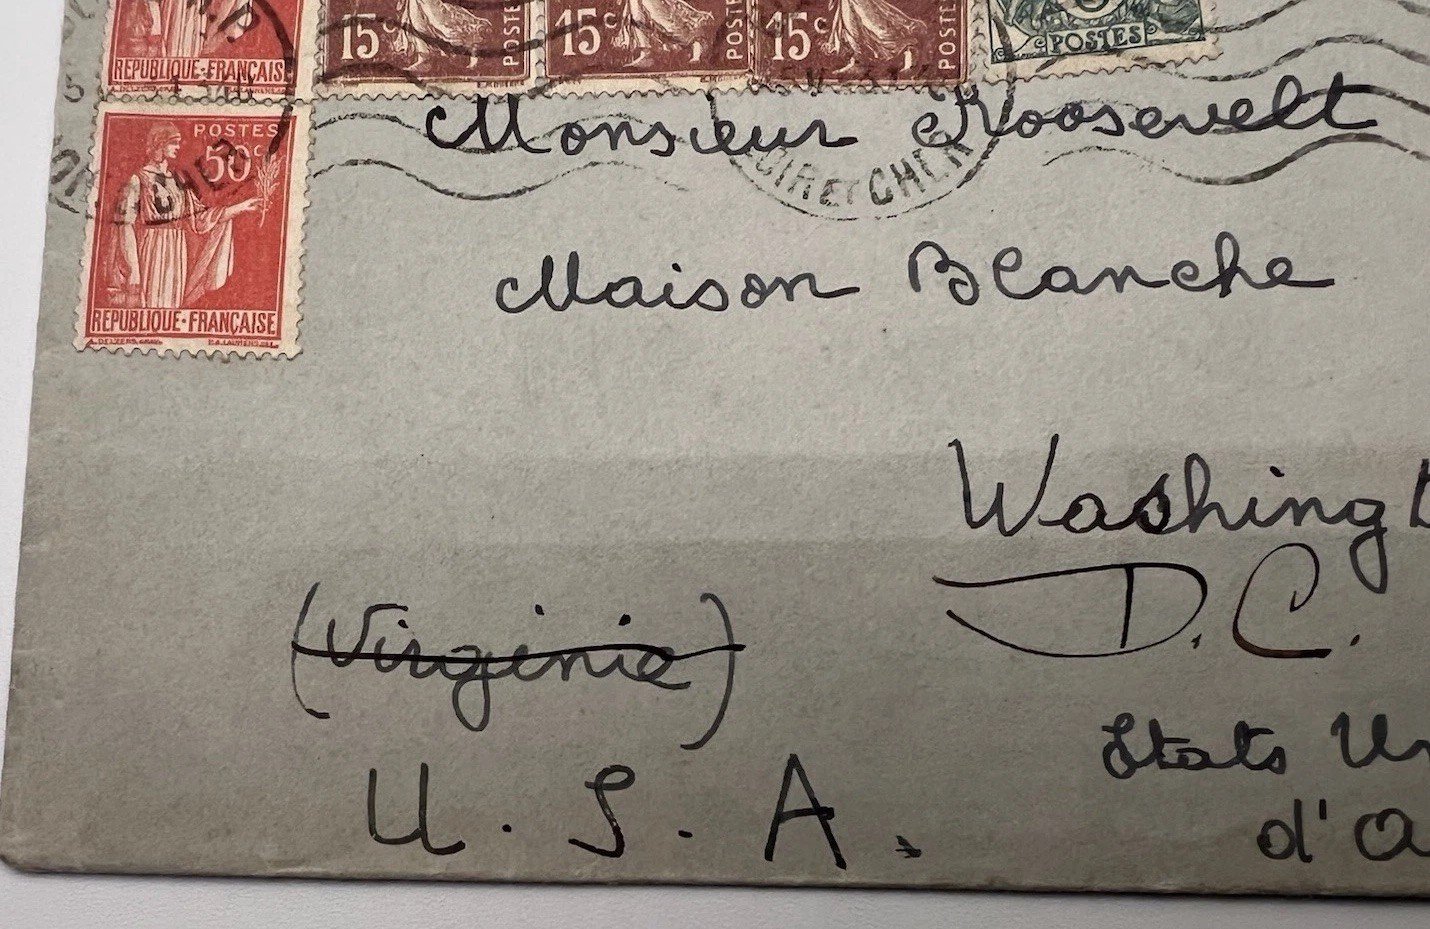 RÉPUBLIQUE·FRANÇAISE
15c POSTES
15c POSTES
15c POSTES
POSTES
POSTES
50c
RÉPUBLIQUE·FRANÇAISE
LOIR ET CHER
Monsieur Roosevelt
Maison Blanche
Washingt
D.C.
(Virginie)
U.S.A.
Etats Un
d'a